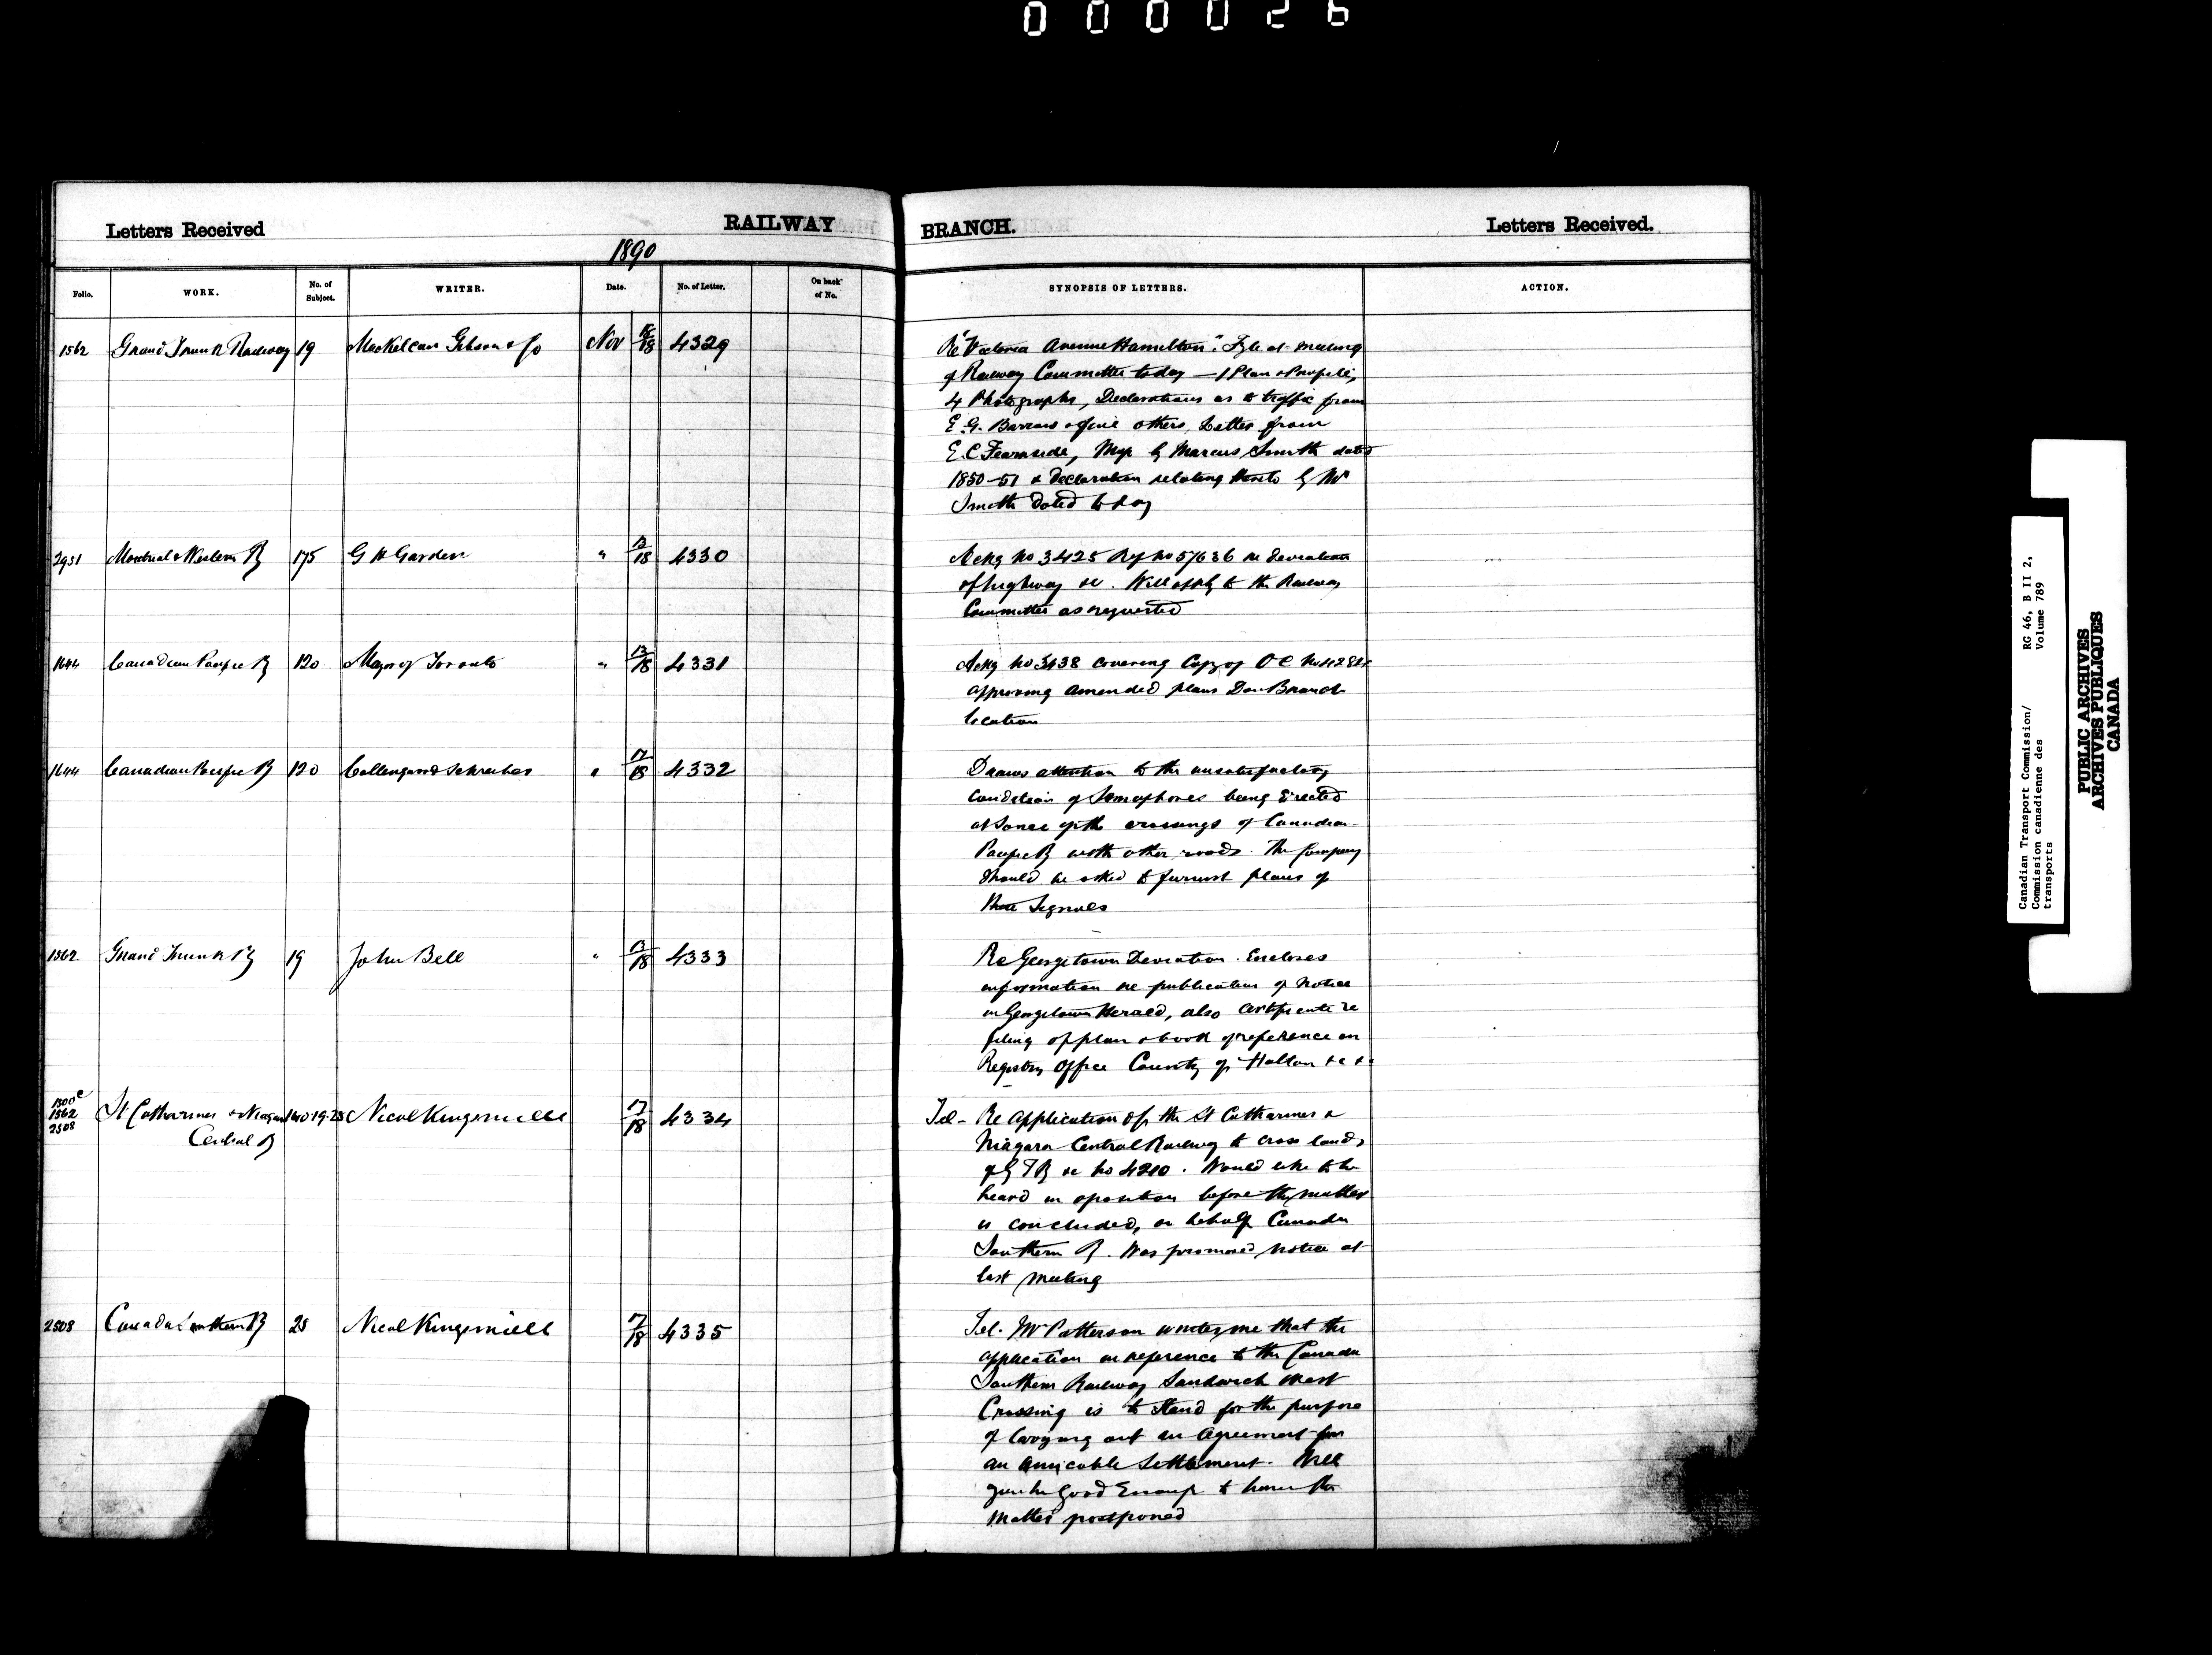 000026
Letters Received
RAILWAY
BRANCH.
Letters Received.
1890
Folio.
WORK.
No. of Subject.
WRITER.
Date.
No. of Letter.
On back of No.
SYNOPSIS OF LETTERS.
ACTION.
1562 Grand Trunk Railway 19 MacKelcan Gibson & Co Nov 18 4329
Re "Victoria Avenue Hamilton". Fyle at meeting
of Railway Committee today — 1 Plan & Profile,
4 Photographs, Declarations as to traffic from
E. G. Barrow & five others, Letter from
E. C. Fearnside, Map by Marcus Smith dated
1850-51 & Declaration relating thereto by Mr
Smith dated today
2951 Montreal & Western Ry 175 G H Garden " 13/18 4330
Ackg no 3425 Ref no 57636 re deviation
of highway &c. Will apply to the Railway
Committee as requested
1644 Canadian Pacific Ry 120 Mayor of Toronto " 13/18 4331
Ackg no 3438 covering Copy of O C
approving amended plans Don Branch
location
1644 Canadian Pacific Ry 120 Collingwood Schreiber " 17/18 4332
Draws attention to the unsatisfactory
condition of Semaphores being Erected
at some of the crossings of Canadian
Pacific Ry with other roads. The Company
should be asked to furnish plans of
these Signals
1562 Grand Trunk Ry 19 John Bell " 13/18 4333
Re Georgetown Deviation. Encloses
information re publication of Notice
in Georgetown Herald, also certificate re
filing of plan & book of reference in
Registry Office County of Halton &c &c
1562
2508 St Catharines & Niagara 140-19-28 Nicol Kingsmill 17/18 4334
Central Ry
Tel - Re Application of the St Catharines &
Niagara Central Railway to cross lands
of G T Ry &c no 4210. Would like to be
heard in opposition before the matter
is concluded, on behalf Canada
Southern Ry. Was promised notice at
last meeting
2508 Canada Southern Ry 28 Nicol Kingsmill 17/18 4335
Tel. Mr Patterson writes me that the
application in reference to the Canada
Southern Railway Sandwich West
Crossing is to stand for the purpose
of carrying out an Agreement for
an amicable Settlement. Will
you be good Enough to have the
matter postponed
Canadian Transport Commission/ RG 46, B II 2,
Commission canadienne des Volume 789
transports
PUBLIC ARCHIVES
ARCHIVES PUBLIQUES
CANADA